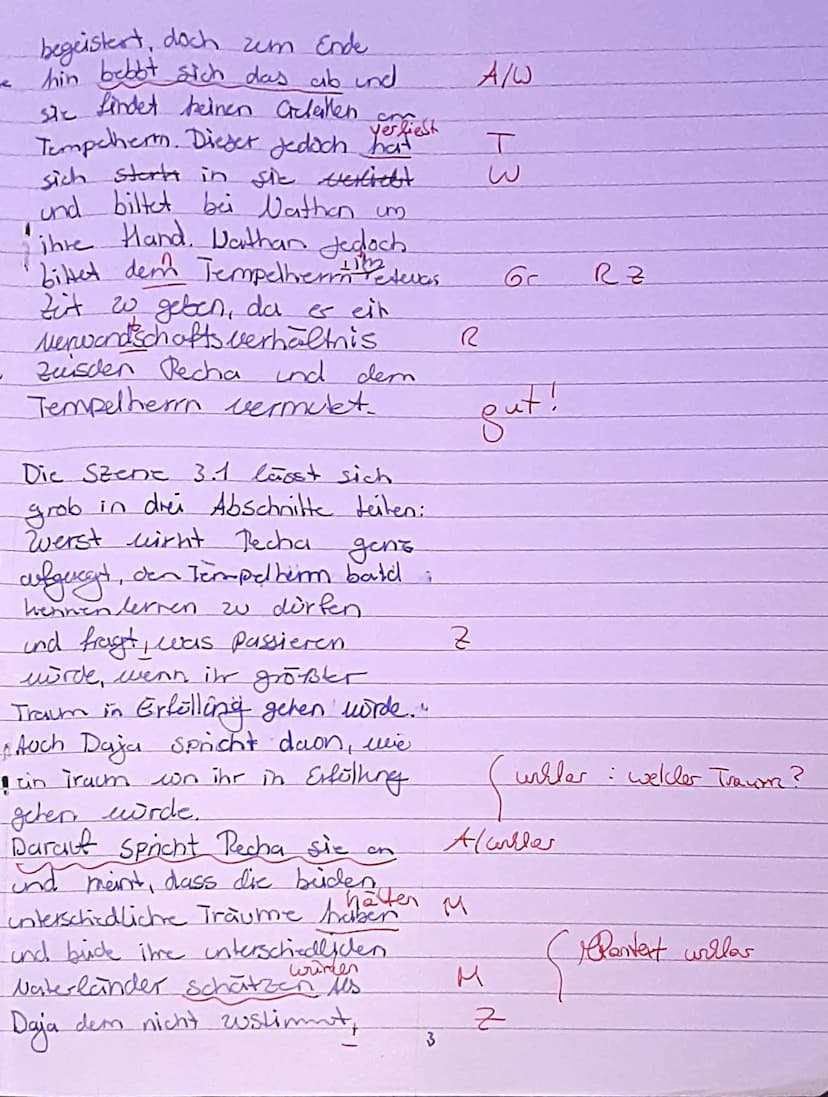 begeistert, doch zum Ende
hin bebbt sich das ab und A/W
sie findet keinen Gefallen am
Tempelherrn. Dieser jedoch hat verliebt T
sich stark in sie verliebt W
und bittet bei Nathan um
ihre Hand. Nathan jedoch
bittet dem Tempelherrn ihm etwas Gr R Z
Zeit zu geben, da er ein
Verwandschaftsverhältnis R
zwischen Recha und dem
Tempelherrn vermutet. gut!
Die Szene 3.1 lässt sich
grob in drei Abschnitte teilen:
Zuerst wirkt Recha ganz
aufgeregt, den Tempelherrn bald
kennenlernen zu dürfen
und fragt, was passieren Z
würde, wenn ihr größter
Traum in Erfüllung gehen würde.
Auch Daja spricht daon, wie
ein Traum von ihr in Erfüllung unklar : welcher Traum?
gehen würde.
Darauf spricht Recha sie an A/unklar
und meint, dass die beiden
unterschiedliche Träume haben hätten M
und beide ihre unterschiedlichen unklar
Vaterländer schätzen würden Als M
Daja dem nicht zustimmt, Z
3